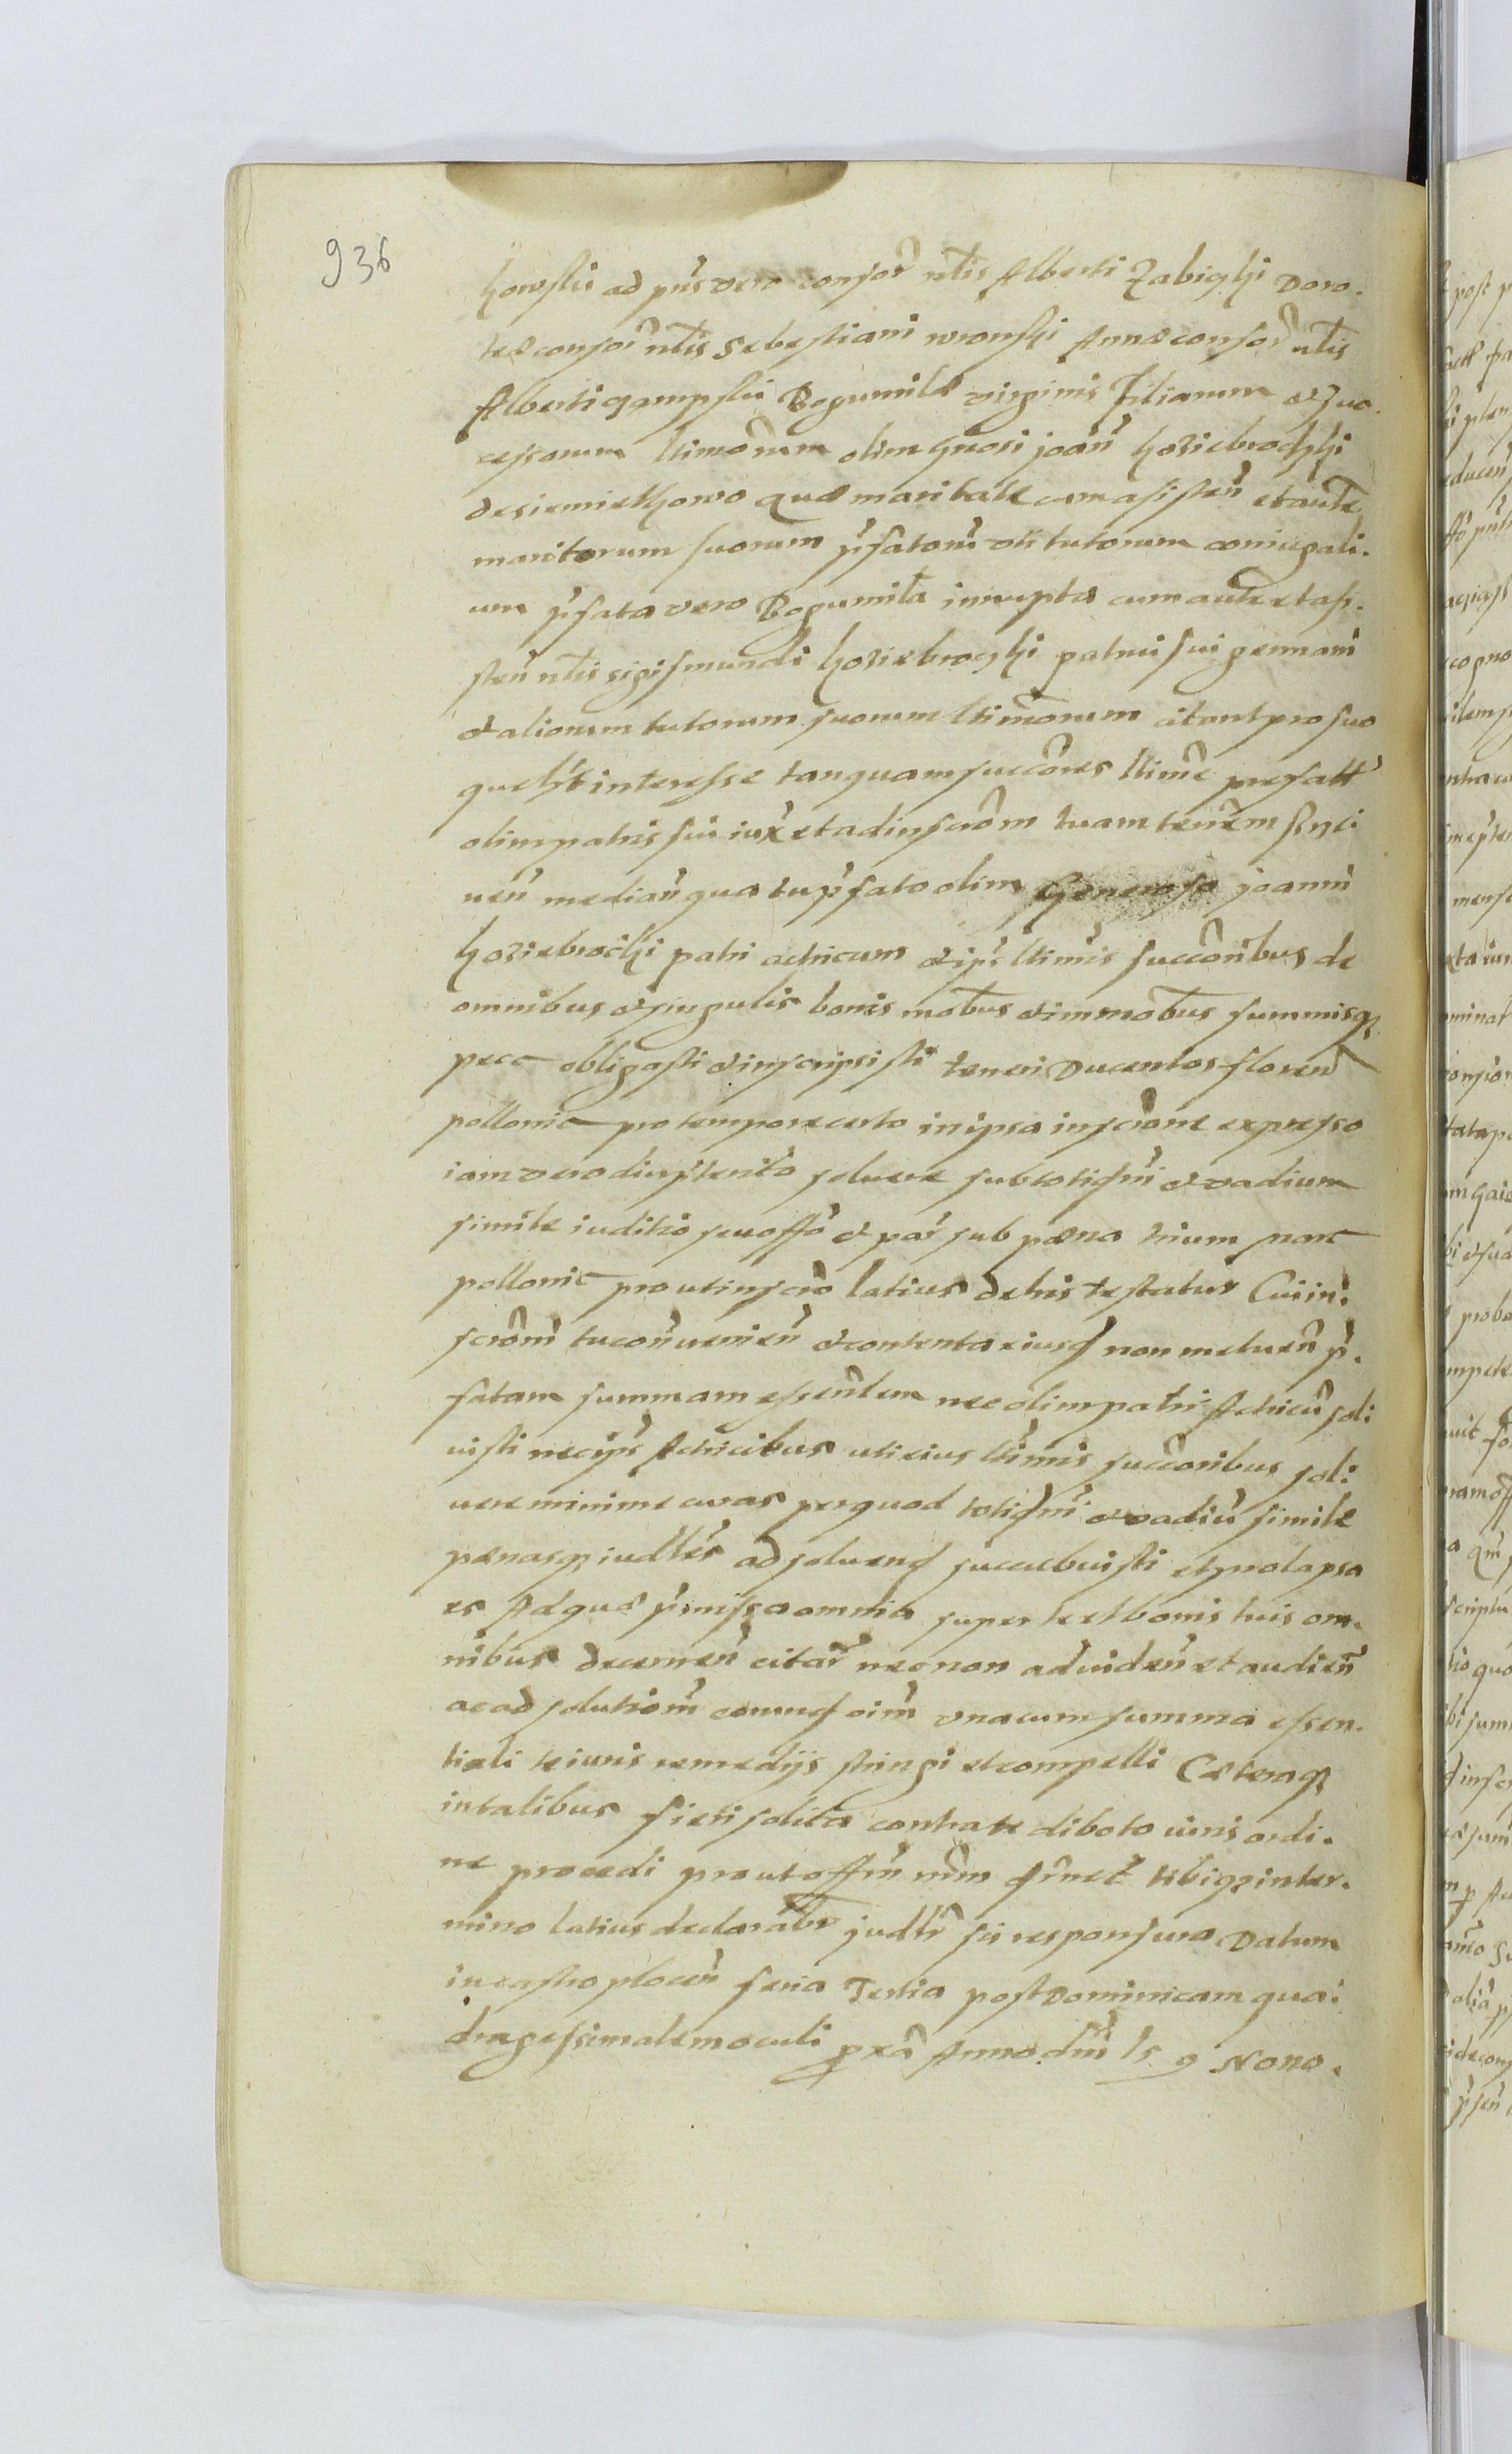 936
howskii ad pn̄s vero consor̄ nl̄is Alberti Zabiczki Doro.
teæ consor̄ nl̄is Sebestiani wronski Annæ consor̄ nl̄is
Alberti Bogumilæ virginis filiarum et suc
cessorum ltimorum olim gnosi joan̄ koziebroczki
de siemiethowo quæ maritate cum asisten̄ et autē
maritorum suorum p̄fatorū uti tutorum coniugali.
um p̄fata vero Bogumila innupta cum autē et asi.
sten̄ nl̄is sigismundi koziebroczki patrui sui germani
et aliorum tutorum suorum ltimorum citant pro suo
quelibt interesse tanquam succōres ltimē prefatt
olim patris sui iux̄ et ad inscrōm tuam tenēm
uen̄ median̄ qua tu p̄fato olim Generoso joanni
koziebrocki patri actricum et ip̄s ltimis succōribus de
omnibus et singulis bonis mob̄us et immob̄us summisq3
pecc obligasti et inscripsisti teneri Ducentos floren̄
pollonic pro tempore certo in ipsa inscrōne expresso
iam vero diu p̄terito soluere sub totiqm̄ et vadium
simile iuditio seu offō et par̄ sub pœna trium marc
pollonic prout inscrō latius de his testatur Cui in:
scrōni tu con̄uenien̄ et contenta eiusd non metuen̄ p̄.
fatam summam essen̄lem nec olim patri Actricū sol
uisti nec ip̄s Actricibus uti eius ltimis succōribus sol:
uere minime curas per quod totiqm̄ et vadiū simile
pœnasq3 iudlēs ad soluend succubuisti et prolapsa
es Ad quæ p̄missa omnia super te et bonis tuis om.
nibus decernen̄ citar̄ necnon ad uiden̄ et audien̄
ac ad solutiōm eorund oim̄ vna cum summa essen.
tiali te iuris remedijs stringi et compelli Cæteraq3
in talibus fieri solita contra te dibto iuris ordi.
ne procedi prout offm̄ nr̄m tibiq3 in ter.
mino latius declarabr judlr sis responsura Datum
in castro plocen̄ feria Tertia post Dominicam qua:
dragessimalem oculi pxā Anno dni̅ 15 9 Nono.